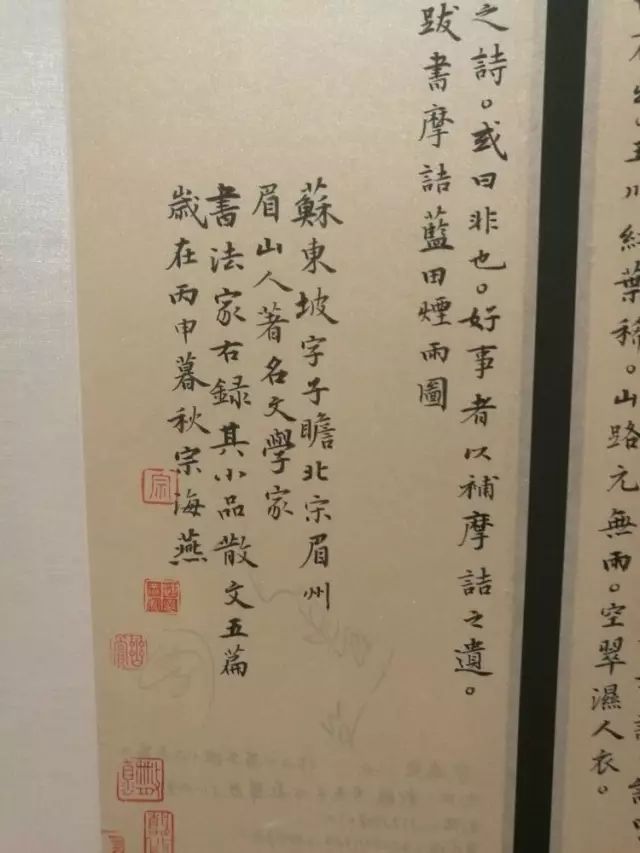 玉川紅葉稀。山路元無雨。空翠濕人衣。
之詩。或曰非也。好事者以補摩詰之遺。
跋書摩詰藍田煙雨圖
蘇東坡字子瞻北宋眉州
眉山人著名文學家
書法家右録其小品散文五篇
歲在丙申暮秋宗海燕
宗